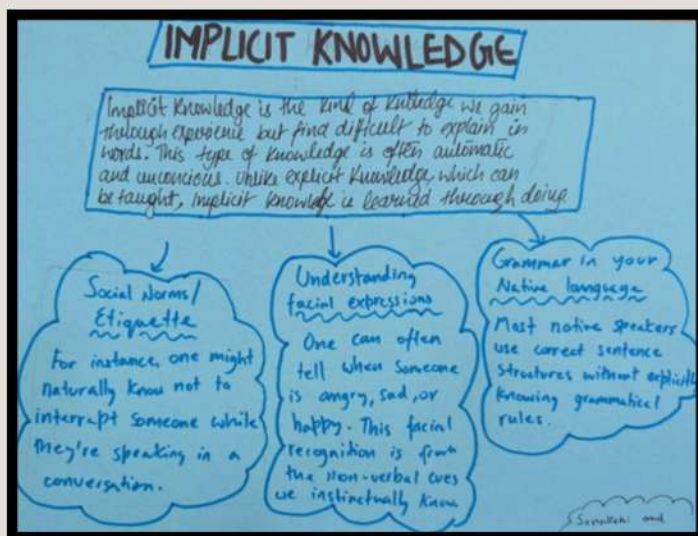 IMPLICIT KNOWLEDGE
Implicit Knowledge is the kind of knowledge we gain
through experience but find difficult to explain in
words. This type of knowledge is often automatic
and unconcious. Unlike explicit knowledge, which can
be taught, implicit knowledge is learned through doing
Social Norms/
Etiquette
For instance, one might
naturally know not to
interrupt someone while
they're speaking in a
conversation.
Understanding
facial expressions
One can often
tell when someone
is angry, sad, or
happy. This facial
recognition is from
the non-verbal cues
we instinctually know
Grammar in your
Native language
Most native speakers
use correct sentence
structures without explicitly
knowing grammatical
rules.
and